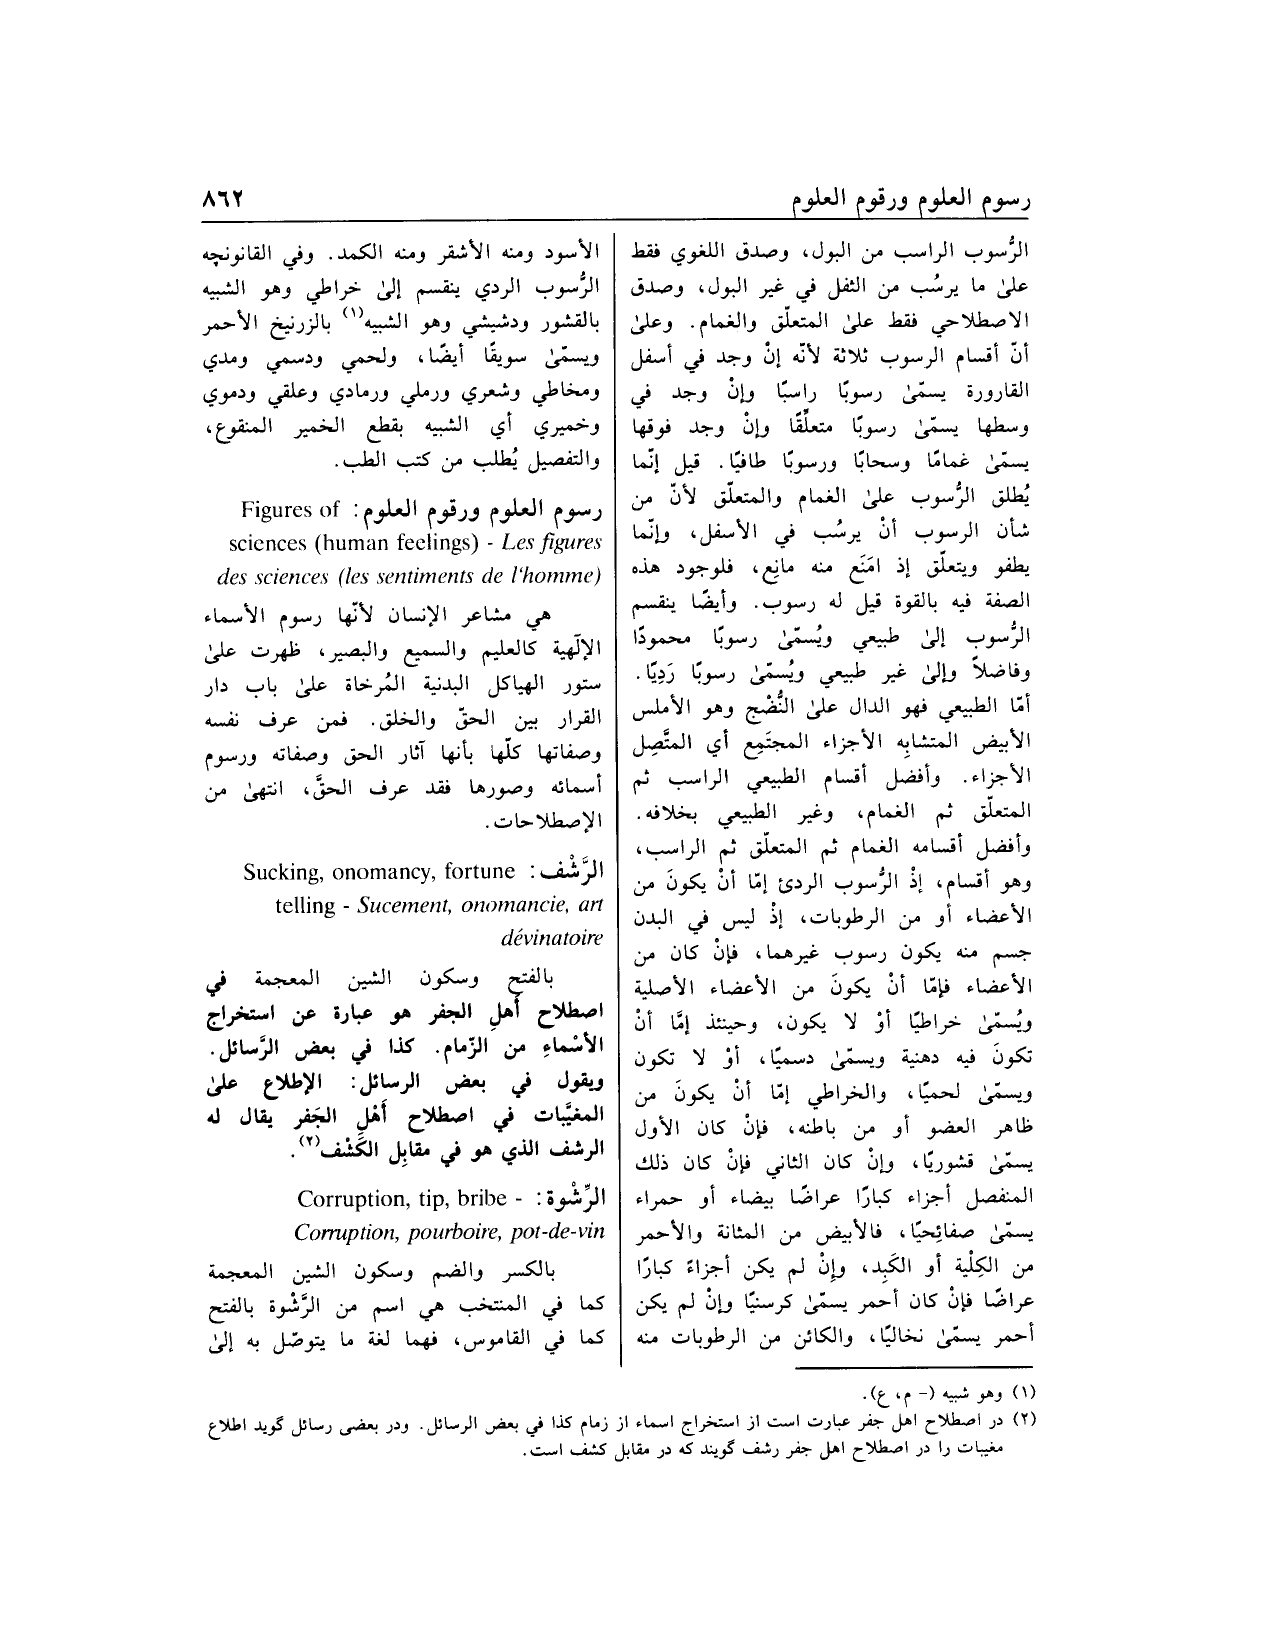 رسوم العلوم ورقوم العلوم
٨٦٢
الرُّسوب الراسب من البول، وصدق اللغوي فقط
علىٰ ما يرسُب من الثفل في غير البول، وصدق
الاصطلاحي فقط علىٰ المتعلّق والغمام. وعلىٰ
أنّ أقسام الرسوب ثلاثة لأنّه إنْ وجد في أسفل
القارورة يسمّىٰ رسوبًا راسبًا وإنْ وجد في
وسطها يسمّىٰ رسوبًا متعلِّقًا وإنْ وجد فوقها
يسمّىٰ غمامًا وسحابًا ورسوبًا طافيًا. قيل إنّما
يُطلق الرُّسوب علىٰ الغمام والمتعلّق لأنّ من
شأن الرسوب أنْ يرسُب في الأسفل، وإنّما
يطفو ويتعلّق إذ امَنَع منه مانِع، فلوجود هذه
الصفة فيه بالقوة قيل له رسوب. وأيضًا ينقسم
الرُّسوب إلىٰ طبيعي ويُسمّىٰ رسوبًا محمودًا
وفاضلاً وإلىٰ غير طبيعي ويُسمّىٰ رسوبًا رَدِيًا.
أمّا الطبيعي فهو الدال علىٰ النُّضْج وهو الأملس
الأبيض المتشابِه الأجزاء المجتَمِع أي المتَّصِل
الأجزاء. وأفضل أقسام الطبيعي الراسب ثم
المتعلّق ثم الغمام، وغير الطبيعي بخلافه.
وأفضل أقسامه الغمام ثم المتعلّق ثم الراسب،
وهو أقسام، إذْ الرُّسوب الردئ إمّا أنْ يكونَ من
الأعضاء أو من الرطوبات، إذْ ليس في البدن
جسم منه يكون رسوب غيرهما، فإنْ كان من
الأعضاء فإمّا أنْ يكونَ من الأعضاء الأصلية
ويُسمّىٰ خراطيًا أوْ لا يكون، وحينئذ إمَّا أنْ
تكونَ فيه دهنية ويسمّىٰ دسميًا، أوْ لا تكون
ويسمّىٰ لحميًا، والخراطي إمّا أنْ يكونَ من
ظاهر العضو أو من باطنه، فإنْ كان الأول
يسمّىٰ قشوريًا، وإنْ كان الثاني فإنْ كان ذلك
المنفصل أجزاء كبارًا عراضًا بيضاء أو حمراء
يسمّىٰ صفائِحيًا، فالأبيض من المثانة والأحمر
من الكِلْية أو الكَبِد، وإنْ لم يكن أجزاءً كبارًا
عراضًا فإنْ كان أحمر يسمّىٰ كرسنيًا وإنْ لم يكن
أحمر يسمّىٰ نخاليًا، والكائن من الرطوبات منه
الأسود ومنه الأشقر ومنه الكمد. وفي القانونچه
الرُّسوب الردي ينقسم إلىٰ خراطي وهو الشبيه
بالقشور ودشيشي وهو الشبيه(١) بالزرنيخ الأحمر
ويسمّىٰ سويقًا أيضًا، ولحمي ودسمي ومدي
ومخاطي وشعري ورملي ورمادي وعلقي ودموي
وخميري أي الشبيه بقطع الخمير المنقوع،
والتفصيل يُطلب من كتب الطب.
رسوم العلوم ورقوم العلوم: Figures of
sciences (human feelings) - Les figures
des sciences (les sentiments de l'homme)
هي مشاعر الإنسان لأنّها رسوم الأسماء
الإلٓهية كالعليم والسميع والبصير، ظهرت علىٰ
ستور الهياكل البدنية المُرخاة علىٰ باب دار
القرار بين الحقّ والخلق. فمن عرف نفسه
وصفاتها كلّها بأنها آثار الحق وصفاته ورسوم
أسمائه وصورها فقد عرف الحقَّ، انتهىٰ من
الإصطلاحات.
الرَّشْف: Sucking, onomancy, fortune
telling - Sucement, onomancie, art
dévinatoire
بالفتح وسكون الشين المعجمة في
اصطلاح أهلِ الجفر هو عبارة عن استخراج
الأسْماءِ من الزّمام. كذا في بعض الرَّسائل.
ويقول في بعض الرسائل: الإطلاع علىٰ
المغيَّبات في اصطلاح أَهْلِ الجَفر يقال له
الرشف الذي هو في مقابِل الكَشْف(٢).
الرِّشْوة: Corruption, tip, bribe -
Corruption, pourboire, pot-de-vin
بالكسر والضم وسكون الشين المعجمة
كما في المنتخب هي اسم من الرَّشْوة بالفتح
كما في القاموس، فهما لغة ما يتوصّل به إلىٰ
(١) وهو شبيه (- م، ع).
(٢) در اصطلاح اهل جفر عبارت است از استخراج اسماء از زمام كذا في بعض الرسائل. ودر بعضى رسائل گويد اطلاع
مغيبات را در اصطلاح اهل جفر رشف گويند كه در مقابل كشف است.